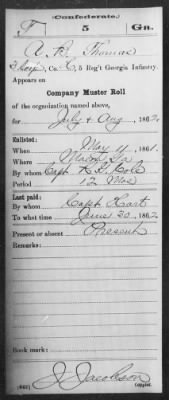 (Confederate.)
T 5 Ga.
A. R. Thomas
Corp, Co. C, 5 Reg't Georgia Infantry.
Appears on
Company Muster Roll
of the organization named above,
for July & Aug, 1862.
Enlisted:
When May 11, 1861.
Where Macon Ga
By whom Capt
Period 12 Mos
Last paid:
By whom Capt Hart
To what time June 30, 1862.
Present or absent Present
Remarks:
J. Jacobson
Copyist.